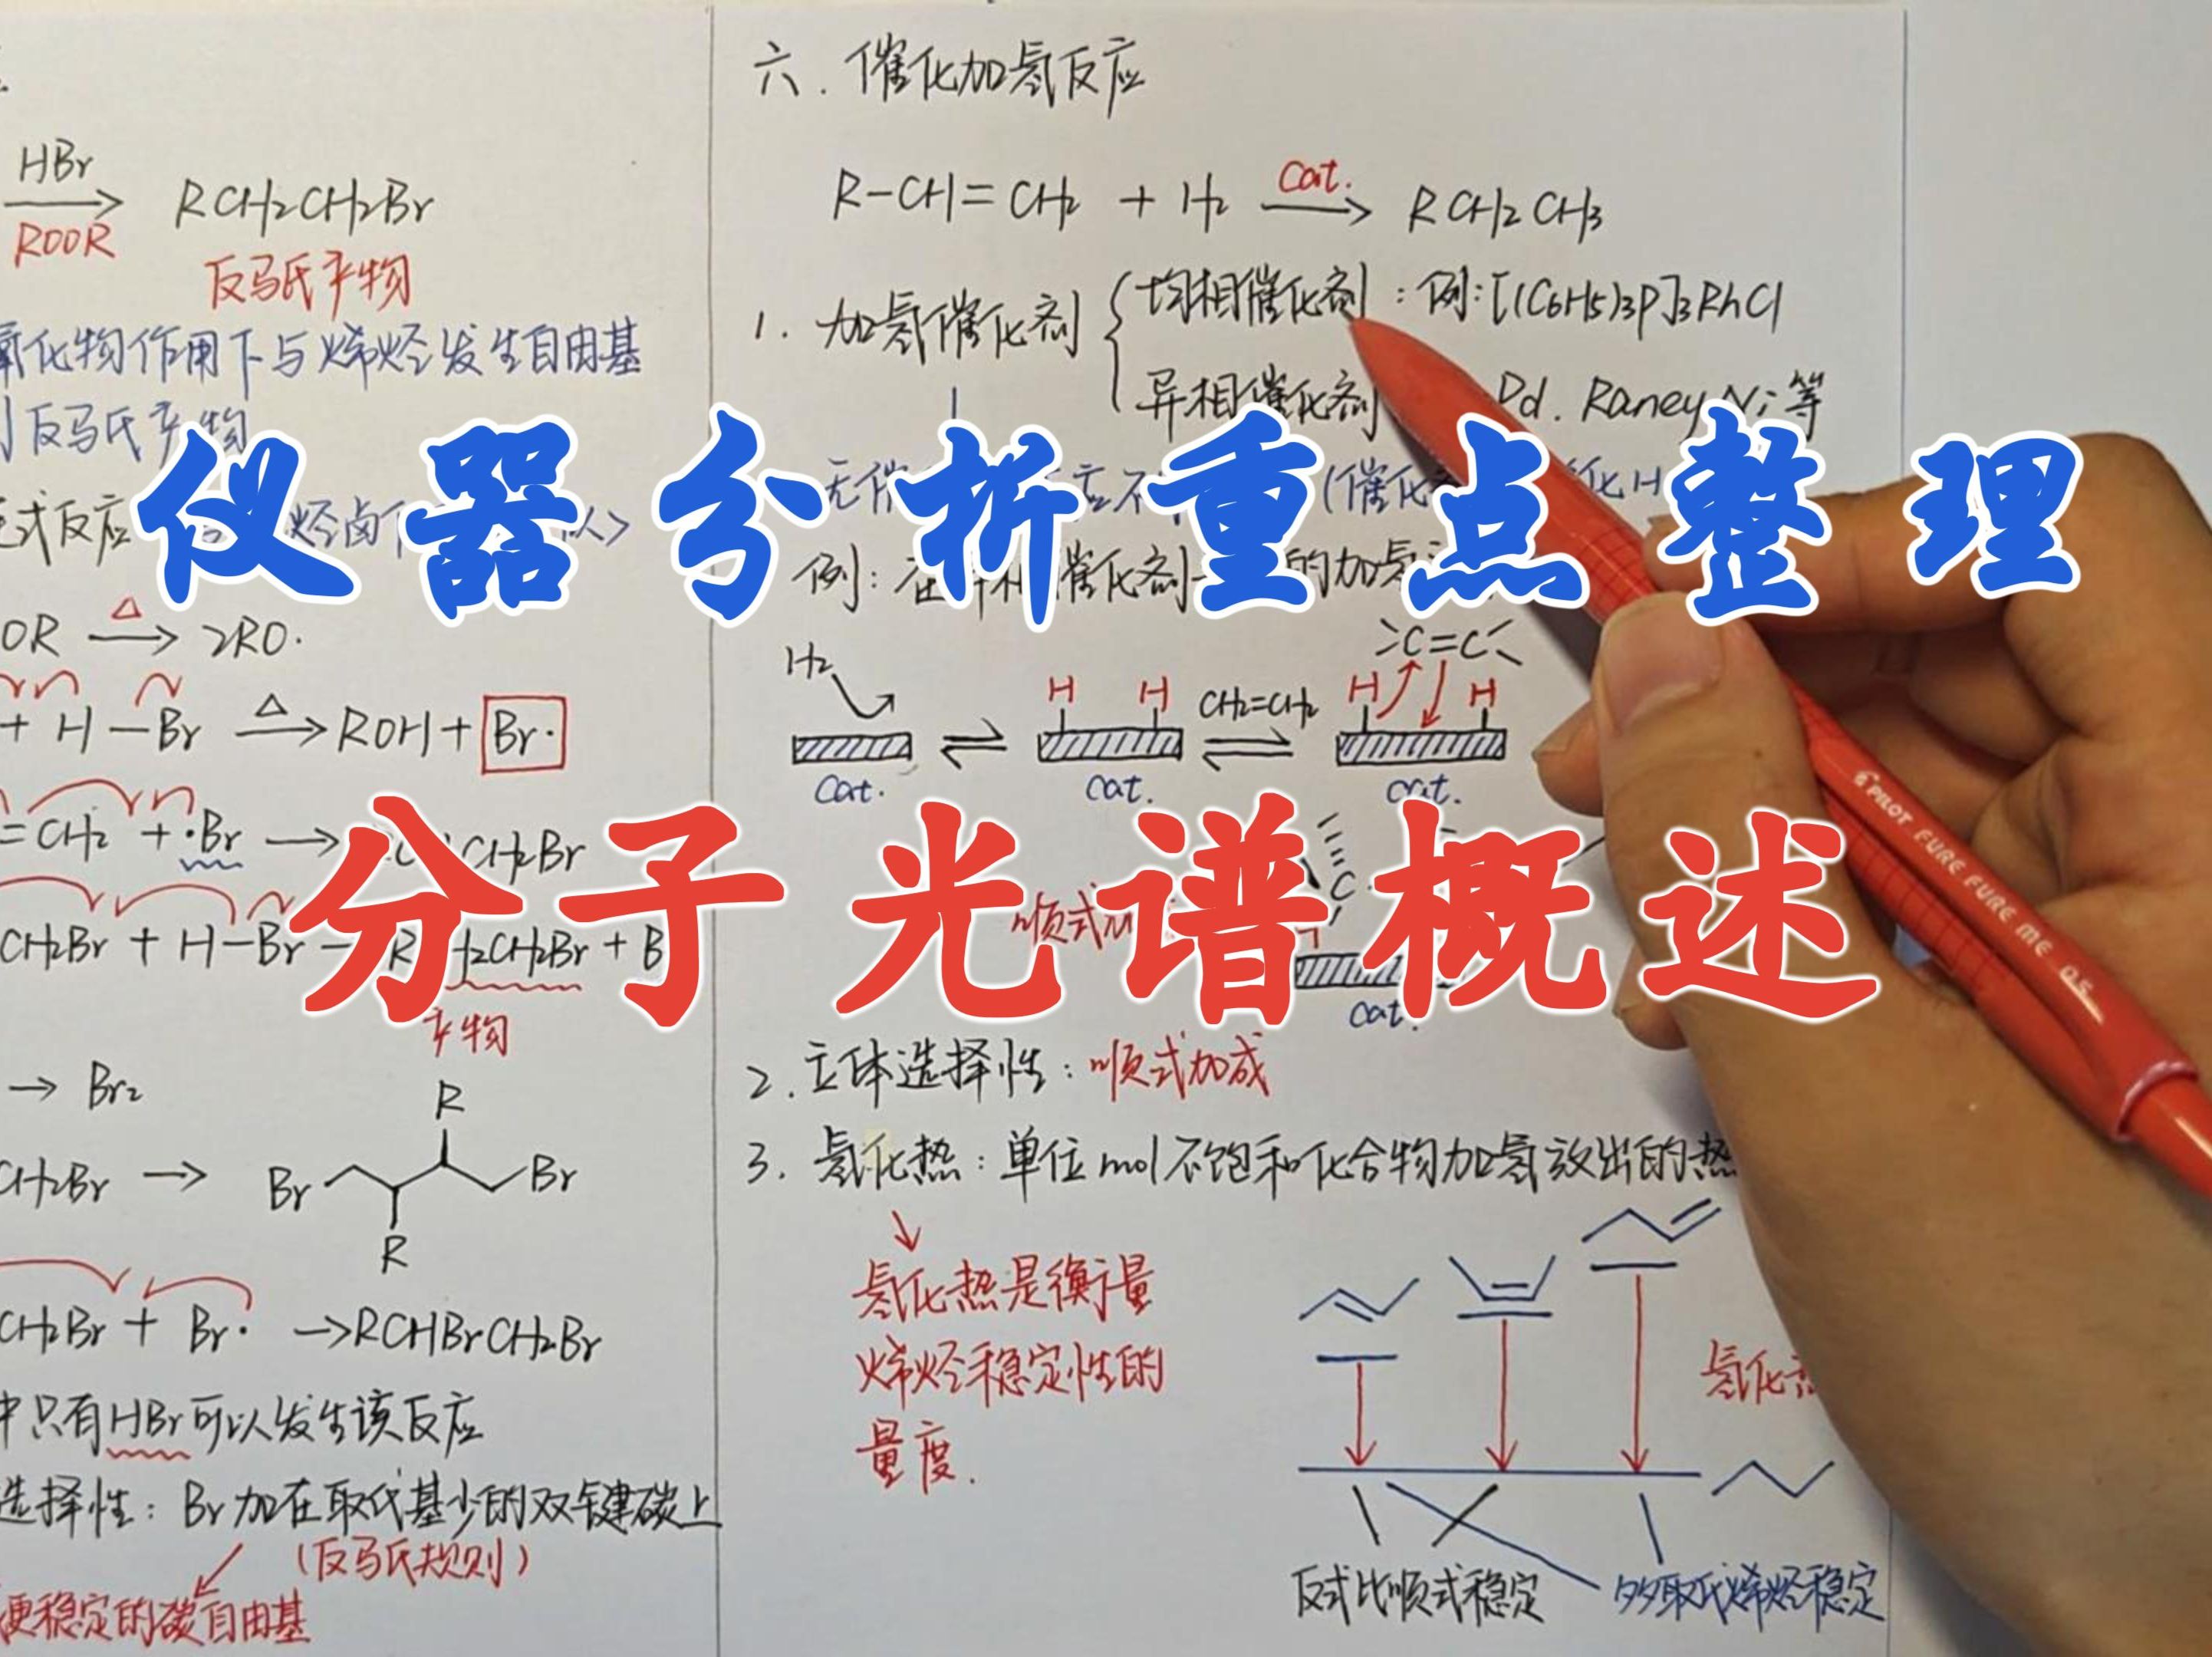 HBr
ROOR
RCH2CH2Br
反马氏产物
氧化物作用下与烯烃发生自由基
反马氏产物
式反应
OR △→ 2RO·
+ H—Br △→ ROH + Br·
=CH2 + ·Br → CH2Br
CH2Br + H—Br → R H2CH2Br + B
产物
→ Br2
CH2Br →
R
Br
Br
R
CH2Br + Br· → RCHBrCH2Br
中只有HBr可以发生该反应
选择性：Br加在取代基少的双键碳上
（反马氏规则）
更稳定的碳自由基
六．催化加氢反应
R-CH=CH2 + H2 cat.→ RCH2CH3
1. 加氢催化剂
均相催化剂：例:[(C6H5)3P]3RhCl
异相催化剂 Pd. Raney Ni等
仪器分析重点整理
例：在 催化剂 的加氢
C=C
H2
H H
CH2=CH2
H H
cat.
cat.
cat.
分子光谱概述
C
顺式
cat.
2. 立体选择性：顺式加成
3. 氢化热：单位mol不饱和化合物加氢放出的热
氢化热是衡量
烯烃稳定性的
量度.
氢化热
反式比顺式稳定
多取代烯烃稳定
PILOT FURE FURE ME 0.5